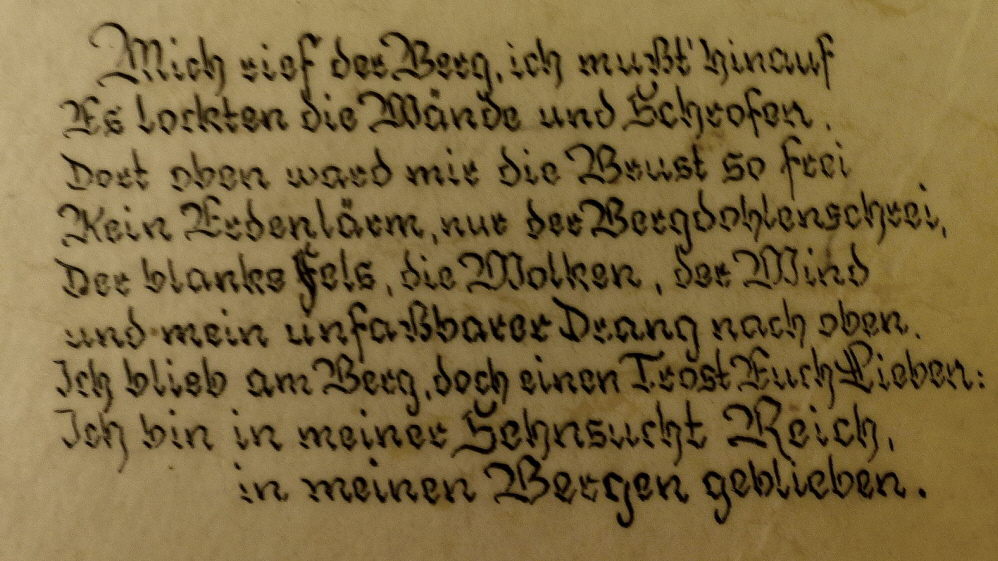 Mich rief der Berg, ich mußt' hinauf
Es lockten die Wände und Schrofen.
Dort oben ward mir die Brust so frei
Kein Erdenlärm, nur der Bergdohlenschrei,
Der blanke Fels, die Wolken, der Wind
und mein unfaßbarer Drang nach oben.
Ich blieb am Berg, doch einen Trost Euch Lieben:
Ich bin in meiner Sehnsucht Reich,
in meinen Bergen geblieben.